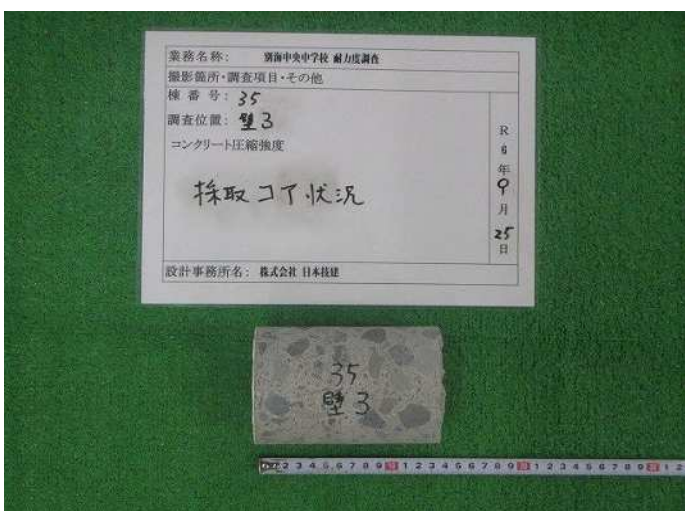 業務名称： 別海中央中学校 耐力度調査
撮影箇所・調査項目・その他
棟番号： 35
調査位置： 壁3
コンクリート圧縮強度
採取コア状況
R6年9月25日
設計事務所名： 株式会社 日本技建
35
壁3
2 3 4 5 6 7 8 9 10 1 2 3 4 5 6 7 8 9 20 1 2 3 4 5 6 7 8 9 30 1 2